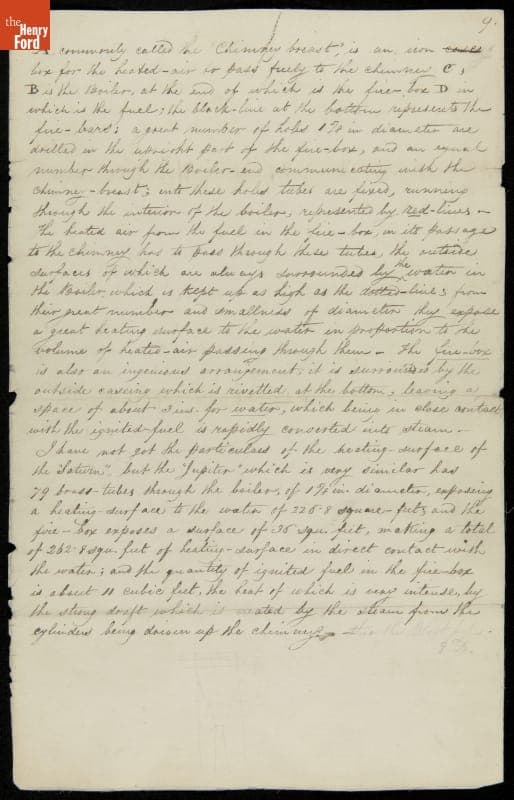 the
Henry
Ford
9.
A commonly called the "Chimney breast", is an iron
box for the heated-air to pass freely to the chimney C,
B is the Boiler, at the end of which is the fire-box D in
which is the fuel; the black-line at the bottom represents the
fire-bars; a great number of holes 1⅝ in diameter are
drilled in the upright part of the fire-box, and an equal
number through the Boiler-end communicating with the
chimney-breast; into these holes tubes are fixed, running
through the interior of the boiler, represented by red-lines –
The heated air from the fuel in the fire-box, in its passage
to the chimney, has to pass through these tubes, the outside
surfaces of which are always surrounded by the water in
the Boiler, which is kept up as high as the dotted-line; from
their great number and smallness of diameter they expose
a great heating surface to the water in proportion to the
volume of heated-air passing through them – The fire-box
is also an ingenious arrangement; it is surrounded by the
outside caseing which is rivetted at the bottom, leaving a
space of about 3 ins. for water, which being in close contact
with the ignited-fuel is rapidly converted into steam. –
I have not got the particulars of the heating-surface of
the "Saturn", but the "Jupiter" which is very similar has
79 brass-tubes through the boiler, of 1⅝ in. diameter, exposing
a heating-surface to the water of 226.8 square-feet, and the
fire-box exposes a surface of 36 squ. feet, making a total
of 262.8 squ. feet of heating-surface in direct contact with
the water; and the quantity of ignited fuel in the fire-box
is about 11 cubic feet, the heat of which is very intense, by
the strong draft which is created by the steam from the
cylinders being driven up the chimney